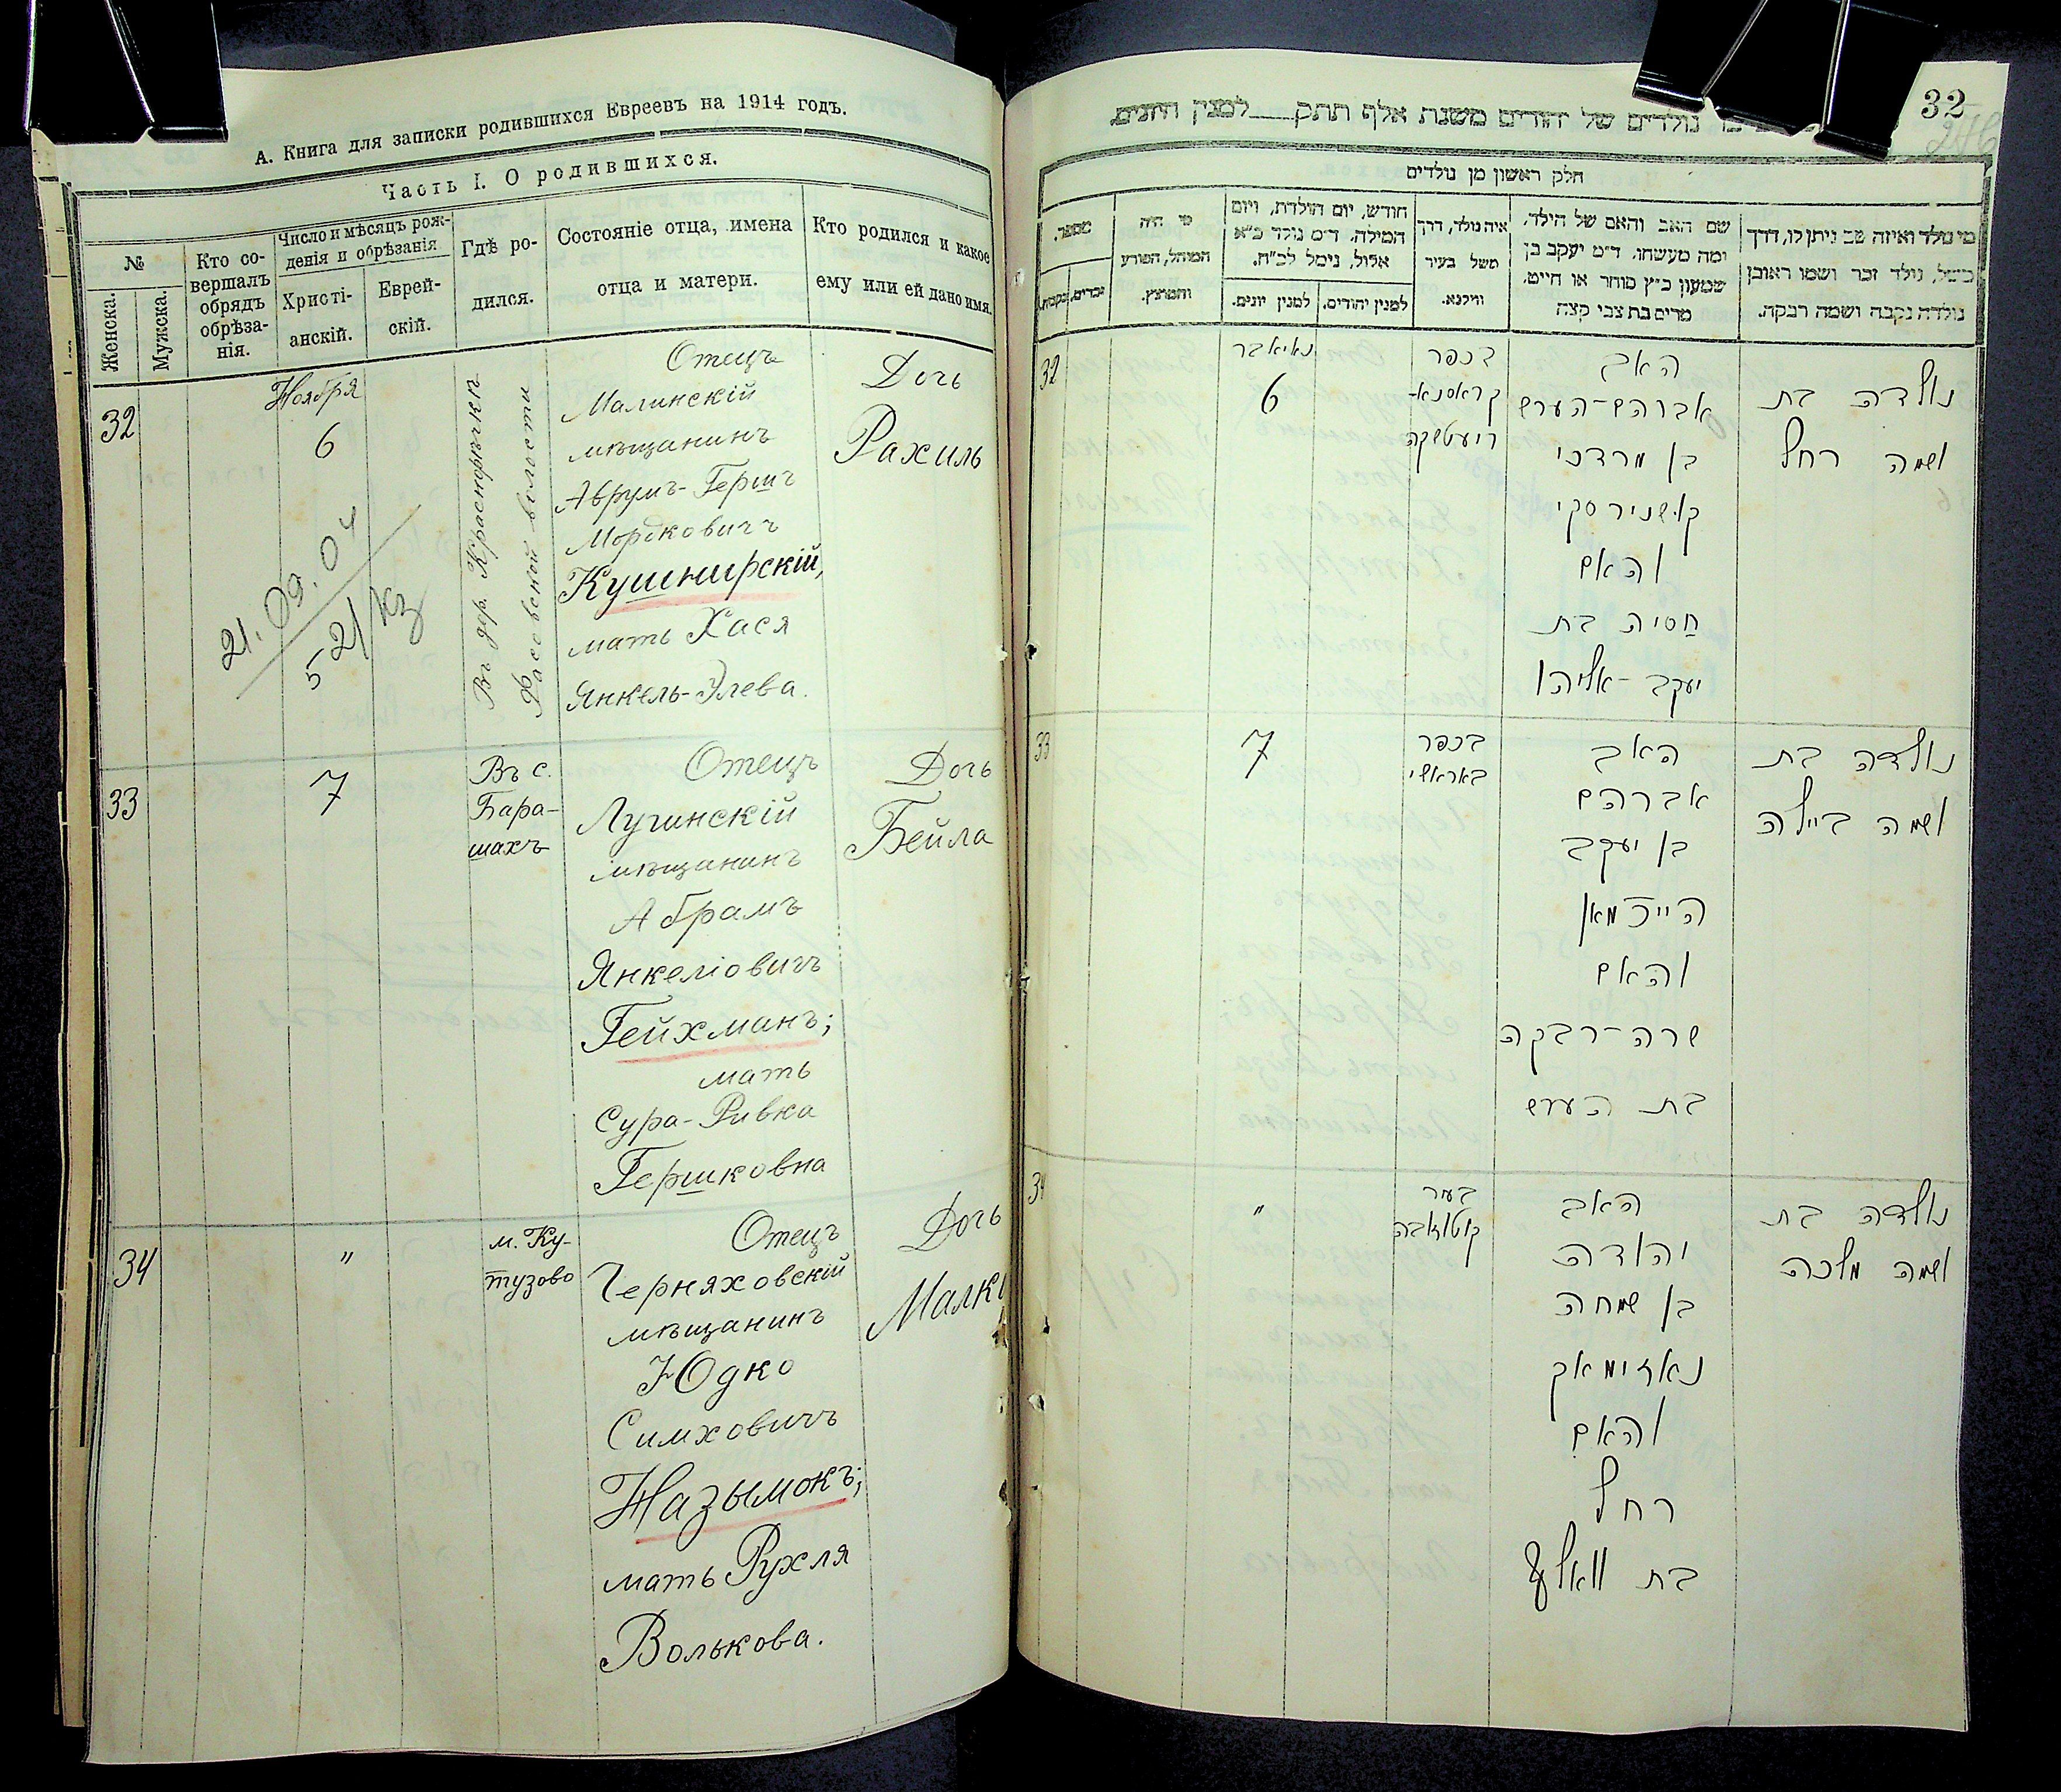 А. Книга для записки родившихся Евреевъ на 1914 годъ.
Часть I. О родившихся.
№
Женска.
Мужска.
Кто со-
вершалъ
обрядъ
обрѣза-
нія.
Число и мѣсяцъ рож-
денія и обрѣзанія
Христі-
анскій.
Еврей-
скій.
Гдѣ ро-
дился.
Состояніе отца, имена
отца и матери.
Кто родился и какое
ему или ей дано имя.
32
Ноября
6
21.09.04
521/Кз
Въ дер.
волости
Отецъ
Малинскій
мѣщанинъ
Аврумъ-Гершъ
Мордковичъ
Кушнирскій,
мать Хася
Янкель-Элева.
Дочь
Рахиль
33
7
Въ с.
Бара-
шахъ
Отецъ
Лугинскій
мѣщанинъ
Абрамъ
Янкеліовичъ
Гейхманъ;
мать
Сура-Ривка
Гершковна
Дочь
Бейла
34
"
м. Ку-
тузово
Отецъ
Черняховскій
мѣщанинъ
Юдко
Симховичъ
Назымокъ;
мать Рухля
Волькова.
Дочь
32
נולדים של יהודים משנת אלף תתק___למנין היונים
חלק ראשון מן נולדים
מי נולד ואיזה שם ניתן לו, דרך
משל, נולד זכר ושמו ראובן
נולדה נקבה ושמה רבקה.
שם האב והאם של הילד,
ומה מעשהו. ד״מ יעקב בן
שמעון כ״ץ סוחר או חיים.
מרים בת צבי קצה
איה נולד, דרך
משל בעיר
ווילנא.
חודש, יום הולדת, ויום
המילה. ד״מ נולד כ״א
אלול, נימל לכ״ח.
למנין יהודים.
למנין יונים.
מי היה
המוהל, הפורע
והמוצץ.
מספר.
זכרים.
נקבות.
32
נאיאבר
6
בכפר
קראסנא-
ריעטשקה
האב
אברהם-הערש
בן מרדכי
קאשנירסקי
והאם
חסיה בת
יעקב-אליהו
נולדה בת
ושמה רחל
33
7
בכפר
באראשי
האב
אברהם
בן יעקב
הייכמאן
והאם
שרה-רבקה
בת הערש
נולדה בת
ושמה ביילה
34
"
בעיר
קוטוזאבה
האב
יהודה
בן שמחה
נאזימאק
והאם
רחל
בת וואלף
נולדה בת
ושמה מלכה